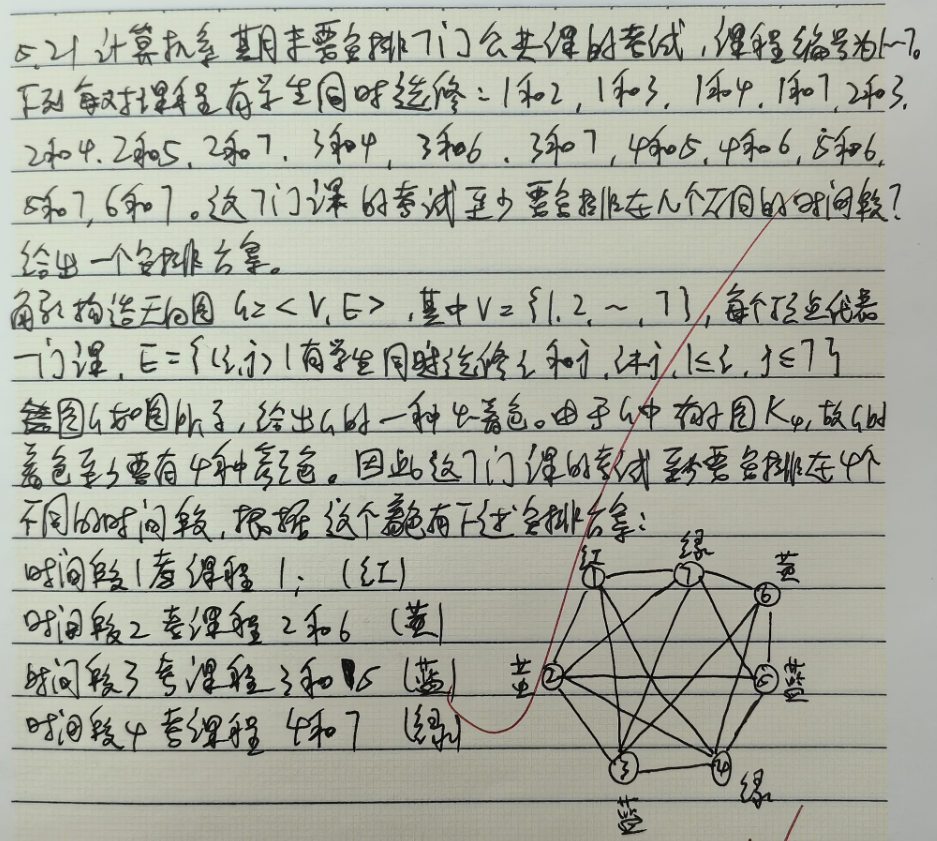 5.21 计算机系期末要安排7门公共课的考试,课程编号为1~7。
下列每对课程有学生同时选修:1和2,1和3,1和4,1和7,2和3,
2和4,2和5,2和7,3和4,3和6,3和7,4和5,4和6,5和6,
5和7,6和7。这7门课的考试至少要安排在几个不同的时间段?
给出一个安排方案。
解:构造无向图 G=<V,E>,其中V={1,2,~,7},每个顶点代表
一门课,E={(i,j)|有学生同时选修i和j,i≠j,1≤i,j≤7}
图G如图所示,给出G的一种4-着色。由于G中有子图K₄,故G的
着色至少要有4种颜色。因此这7门课的考试至少要安排在4个
不同的时间段,根据这个着色有下述安排方案:
时间段1考课程1;(红)
时间段2考课程2和6(黄)
时间段3考课程3和5(蓝)
时间段4考课程4和7(绿)
红 绿 黄
1 7 6
黄 2 5 蓝
3 4
蓝 绿